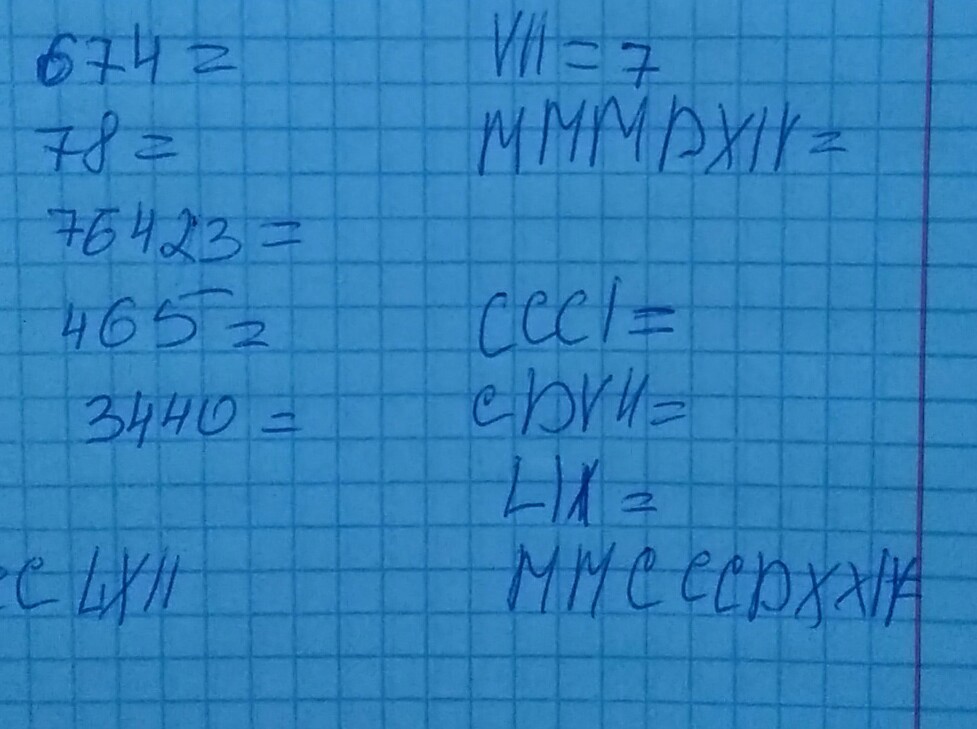 674 = VII = 7
78 = MMMDXIV =
76423 =
465 = CCCI =
3440 = CDVII =
LIX =
CLXII MMCCCDXXIV=